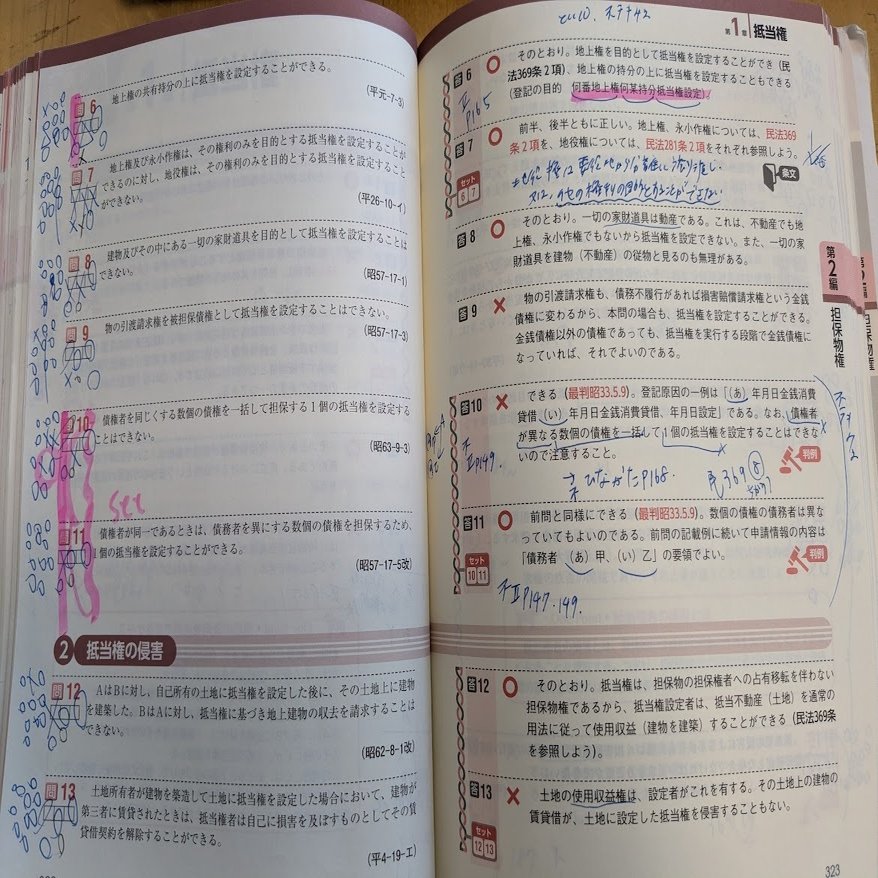 問6
地上権の共有持分の上に抵当権を設定することができる。
(平元-7-3)
問7
地上権及び永小作権は、その権利のみを目的とする抵当権を設定することが
できるのに対し、地役権は、その権利のみを目的とする抵当権を設定すること
ができない。
(平26-10-イ)
問8
建物及びその中にある一切の家財道具を目的として抵当権を設定することは
できない。
(昭57-17-1)
問9
物の引渡請求権を被担保債権として抵当権を設定することはできない。
(昭57-17-3)
問10
債権者を同じくする数個の債権を一括して担保する1個の抵当権を設定する
ことはできない。
(昭63-9-3)
問11
債権者が同一であるときは、債務者を異にする数個の債権を担保するため、
1個の抵当権を設定することができる。
(昭57-17-5改)
2 抵当権の侵害
問12
AはBに対し、自己所有の土地に抵当権を設定した後に、その土地上に建物
を建築した。BはAに対し、抵当権に基づき地上建物の収去を請求することは
できない。
(昭62-8-1改)
問13
土地所有者が建物を築造して土地に抵当権を設定した場合において、建物が
第三者に賃貸されたときは、抵当権者は自己に損害を及ぼすものとしてその賃
貸借契約を解除することができる。
(平4-19-エ)
第1章 抵当権
答6
そのとおり。地上権を目的として抵当権を設定することができ(民
法369条2項)、地上権の持分の上に抵当権を設定することもできる
(登記の目的 何番地上権何某持分抵当権設定)。
P165
答7
前半、後半ともに正しい。地上権、永小作権については、民法369
条2項を、地役権については、民法281条2項をそれぞれ参照しよう。
条文
セット
6 7
答8
そのとおり。一切の家財道具は動産である。これは、不動産でも地
上権、永小作権でもないから抵当権を設定できない。また、一切の家
財道具を建物(不動産)の従物と見るのも無理がある。
答9
物の引渡請求権も、債務不履行があれば損害賠償請求権という金銭
債権に変わるから、本問の場合も、抵当権を設定することができる。
金銭債権以外の債権であっても、抵当権を実行する段階で金銭債権に
なっていれば、それでよいのである。
答10
できる(最判昭33.5.9)。登記原因の一例は「(あ)年月日金銭消費
貸借、(い)年月日金銭消費貸借、年月日設定」である。なお、債権者
が異なる数個の債権を一括して1個の抵当権を設定することはできな
いので注意すること。
判例
ひながたP168.
答11
前問と同様にできる(最判昭33.5.9)。数個の債権の債務者は異な
っていてもよいのである。前問の記載例に続いて申請情報の内容は
「債務者 (あ)甲、(い)乙」の要領でよい。
判例
セット
10 11
P147.149.
答12
そのとおり。抵当権は、担保物の担保権者への占有移転を伴わない
担保物権であるから、抵当権設定者は、抵当不動産(土地)を通常の
用法に従って使用収益(建物を建築)することができる(民法369条
を参照しよう)。
答13
土地の使用収益権は、設定者がこれを有する。その土地上の建物の
賃貸借が、土地に設定した抵当権を侵害することもない。
セット
12 13
第2編
担保物権
323